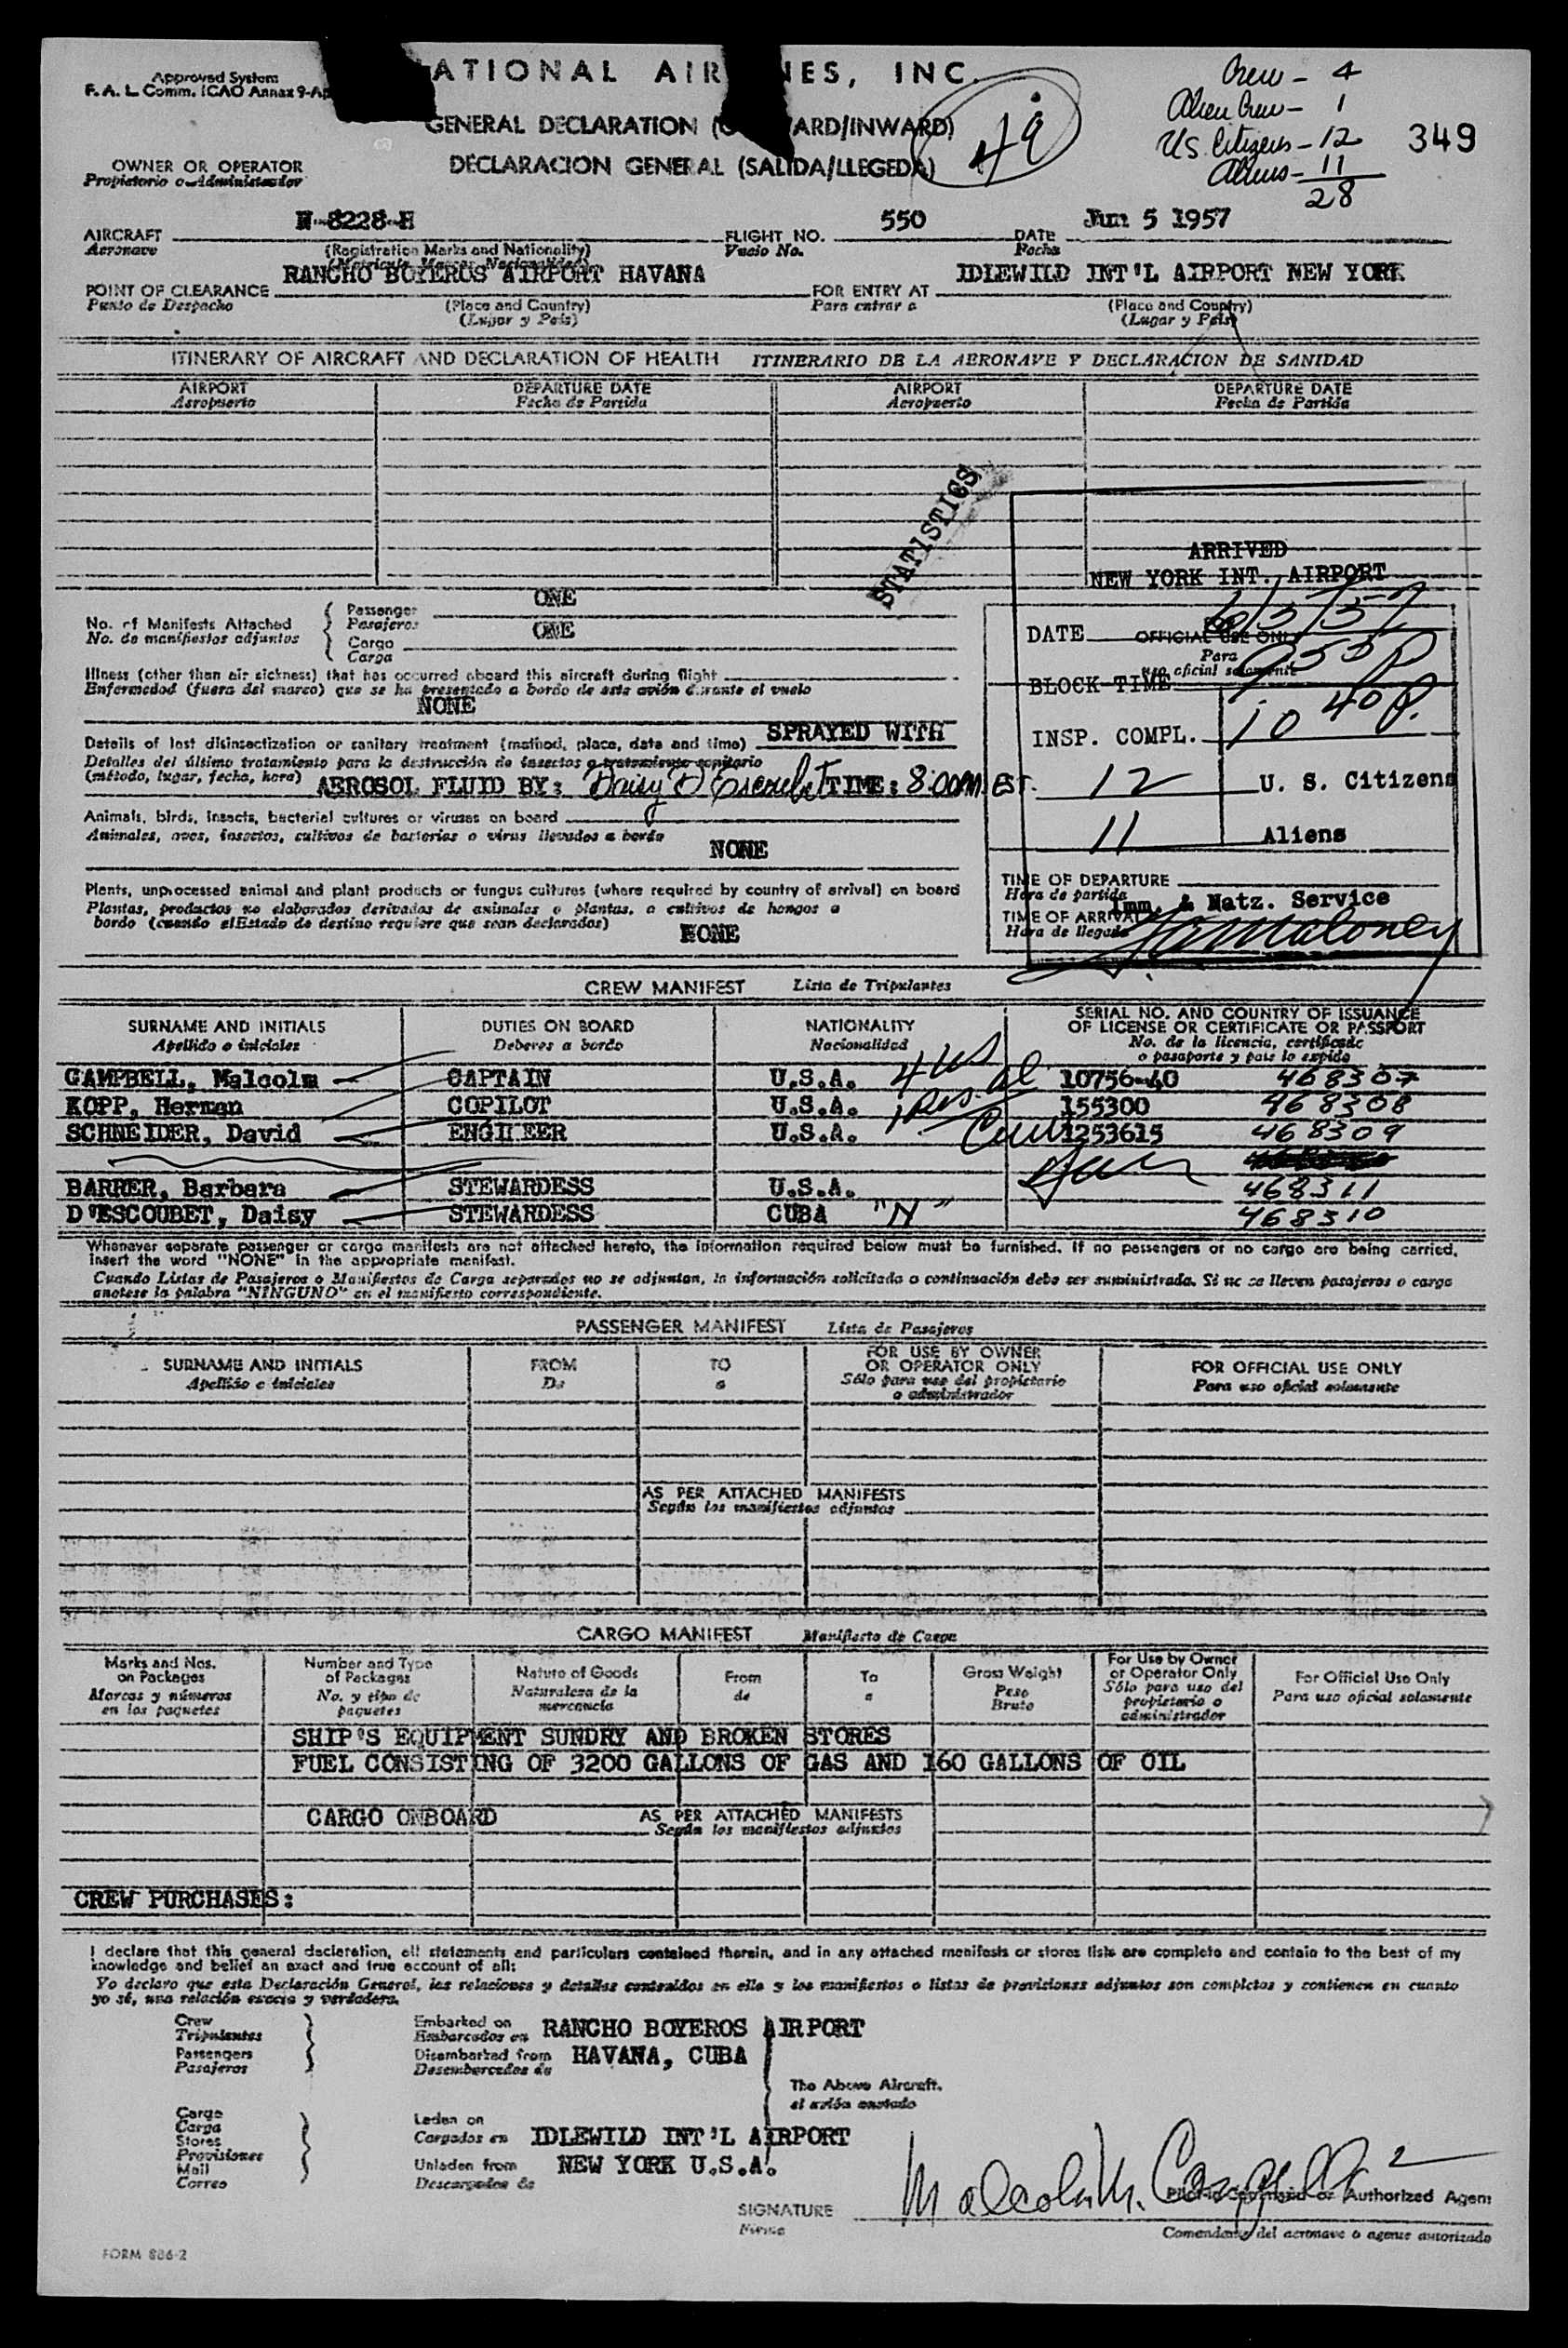 Approved System
F. A. L. Comm. ICAO Annax 9-Ap
ATIONAL AIR NES, INC.
GENERAL DECLARATION (O ARD/INWARD)
DECLARACION GENERAL (SALIDA/LLEGEDA)
49
Crew - 4
Alien Crew - 1
U.S. Citizens - 12
Aliens - 11
28
349
OWNER OR OPERATOR
Propietario o Administrador
AIRCRAFT N-8228-H FLIGHT NO. 550 DATE Jun 5 1957
Aeronave (Registration Marks and Nationality) Vuelo No. Fecha
POINT OF CLEARANCE RANCHO BOYEROS AIRPORT HAVANA FOR ENTRY AT IDLEWILD INT'L AIRPORT NEW YORK
Punto de Despacho (Place and Country) Para entrar a (Place and Country)
(Lugar y País) (Lugar y País)
ITINERARY OF AIRCRAFT AND DECLARATION OF HEALTH ITINERARIO DE LA AERONAVE Y DECLARACION DE SANIDAD
AIRPORT DEPARTURE DATE AIRPORT DEPARTURE DATE
Aeropuerto Fecha de Partida Aeropuerto Fecha de Partida
STATISTICS
ARRIVED
NEW YORK INT. AIRPORT
DATE 6/5/57
OFFICIAL USE ONLY
Para
uso oficial solamente
BLOCK TIME 955P
INSP. COMPL. 10 40 P.
12 U. S. Citizens
11 Aliens
TIME OF DEPARTURE
Hora de partida
Imm. & Natz. Service
TIME OF ARRIVAL
Hora de llegada
Maloney
No. of Manifests Attached
No. de manifiestos adjuntos
Passenger ONE
Pasajeros
Cargo ONE
Carga
Illness (other than air sickness) that has occurred aboard this aircraft during flight
Enfermedad (fuera del mareo) que se ha presentado a bordo de este avión durante el vuelo
NONE
Details of last disinsectization or sanitary treatment (method, place, date and time) SPRAYED WITH
Detalles del último tratamiento para la destrucción de insectos o tratamiento sanitario
(método, lugar, fecha, hora) AEROSOL FLUID BY: Daisy D'Escoubet TIME: 8:00PM. EST.
Animals, birds, insects, bacterial cultures or viruses on board
Animales, aves, insectos, cultivos de bacterias o virus llevados a bordo
NONE
Plants, unprocessed animal and plant products or fungus cultures (where required by country of arrival) on board
Plantas, productos no elaborados derivados de animales o plantas, o cultivos de hongos a
bordo (cuando el Estado de destino requiere que sean declarados)
NONE
CREW MANIFEST Lista de Tripulantes
SURNAME AND INITIALS DUTIES ON BOARD NATIONALITY SERIAL NO. AND COUNTRY OF ISSUANCE
OF LICENSE OR CERTIFICATE OR PASSPORT
Apellido e iniciales Deberes a bordo Nacionalidad No. de la licencia, certificado
o pasaporte y pais lo expide
CAMPBELL, Malcolm CAPTAIN U.S.A. 4 US 10756-40 468307
KOPP, Herman COPILOT U.S.A. 155300 468308
SCHNEIDER, David ENGINEER U.S.A. 1253615 468309
BARRER, Barbara STEWARDESS U.S.A. 468311
D'ESCOUBET, Daisy STEWARDESS CUBA "N" 468310
Whenever separate passenger or cargo manifests are not attached hereto, the information required below must be furnished. If no passengers or no cargo are being carried,
insert the word "NONE" in the appropriate manifest.
Cuando Listas de Pasajeros o Manifiestos de Carga separados no se adjuntan, la información solicitada a continuación debe ser suministrada. Si no se lleven pasajeros o carga
anotese la palabra "NINGUNO" en el manifiesto correspondiente.
PASSENGER MANIFEST Lista de Pasajeros
SURNAME AND INITIALS FROM TO FOR USE BY OWNER
OR OPERATOR ONLY FOR OFFICIAL USE ONLY
Apellido e iniciales De a Sólo para uso del propietario
o administrador Para uso oficial solamente
AS PER ATTACHED MANIFESTS
Según los manifiestos adjuntos
CARGO MANIFEST Manifiesto de Carga
Marks and Nos.
on Packages
Marcas y números
en los paquetes
Number and Type
of Packages
No. y tipo de
paquetes
Nature of Goods
Naturaleza de la
mercancía
From
de
To
a
Gross Weight
Peso
Bruto
For Use by Owner
or Operator Only
Sólo para uso del
propietario o
administrador
For Official Use Only
Para uso oficial solamente
SHIP'S EQUIPMENT SUNDRY AND BROKEN STORES
FUEL CONSISTING OF 3200 GALLONS OF GAS AND 160 GALLONS OF OIL
CARGO ONBOARD AS PER ATTACHED MANIFESTS
Según los manifiestos adjuntos
CREW PURCHASES:
I declare that this general declaration, all statements and particulars contained therein, and in any attached manifests or stores lists are complete and contain to the best of my
knowledge and belief an exact and true account of all:
Yo declaro que esta Declaración General, las relaciones y detalles contenidos en ella y los manifiestos o listas de provisiones adjuntos son completos y contienen en cuanto
yo sé, una relación exacta y verdadera.
Crew
Tripulantes
Passengers
Pasajeros
Embarked on RANCHO BOYEROS AIRPORT
Embarcados en
Disembarked from HAVANA, CUBA
Desembarcados de
The Above Aircraft.
el avión anotado
Cargo
Carga
Stores
Provisiones
Mail
Correo
Laden on
Cargados en IDLEWILD INT'L AIRPORT
Unladen from NEW YORK U.S.A.
Descargados de
SIGNATURE Malcolm M. Campbell
Firma
Pilot-in-Command or Authorized Agent
Comandante del aeronave o agente autorizado
FORM 886-2